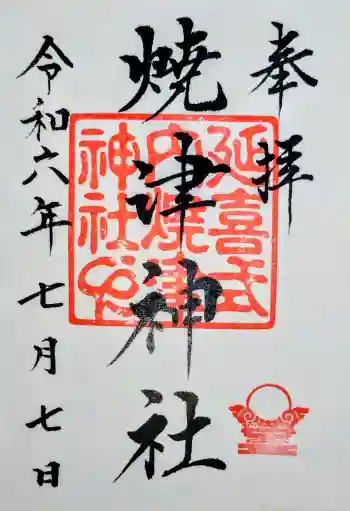 奉拝
焼津神社
令和六年七月七日
延喜式
内焼津
神社之印